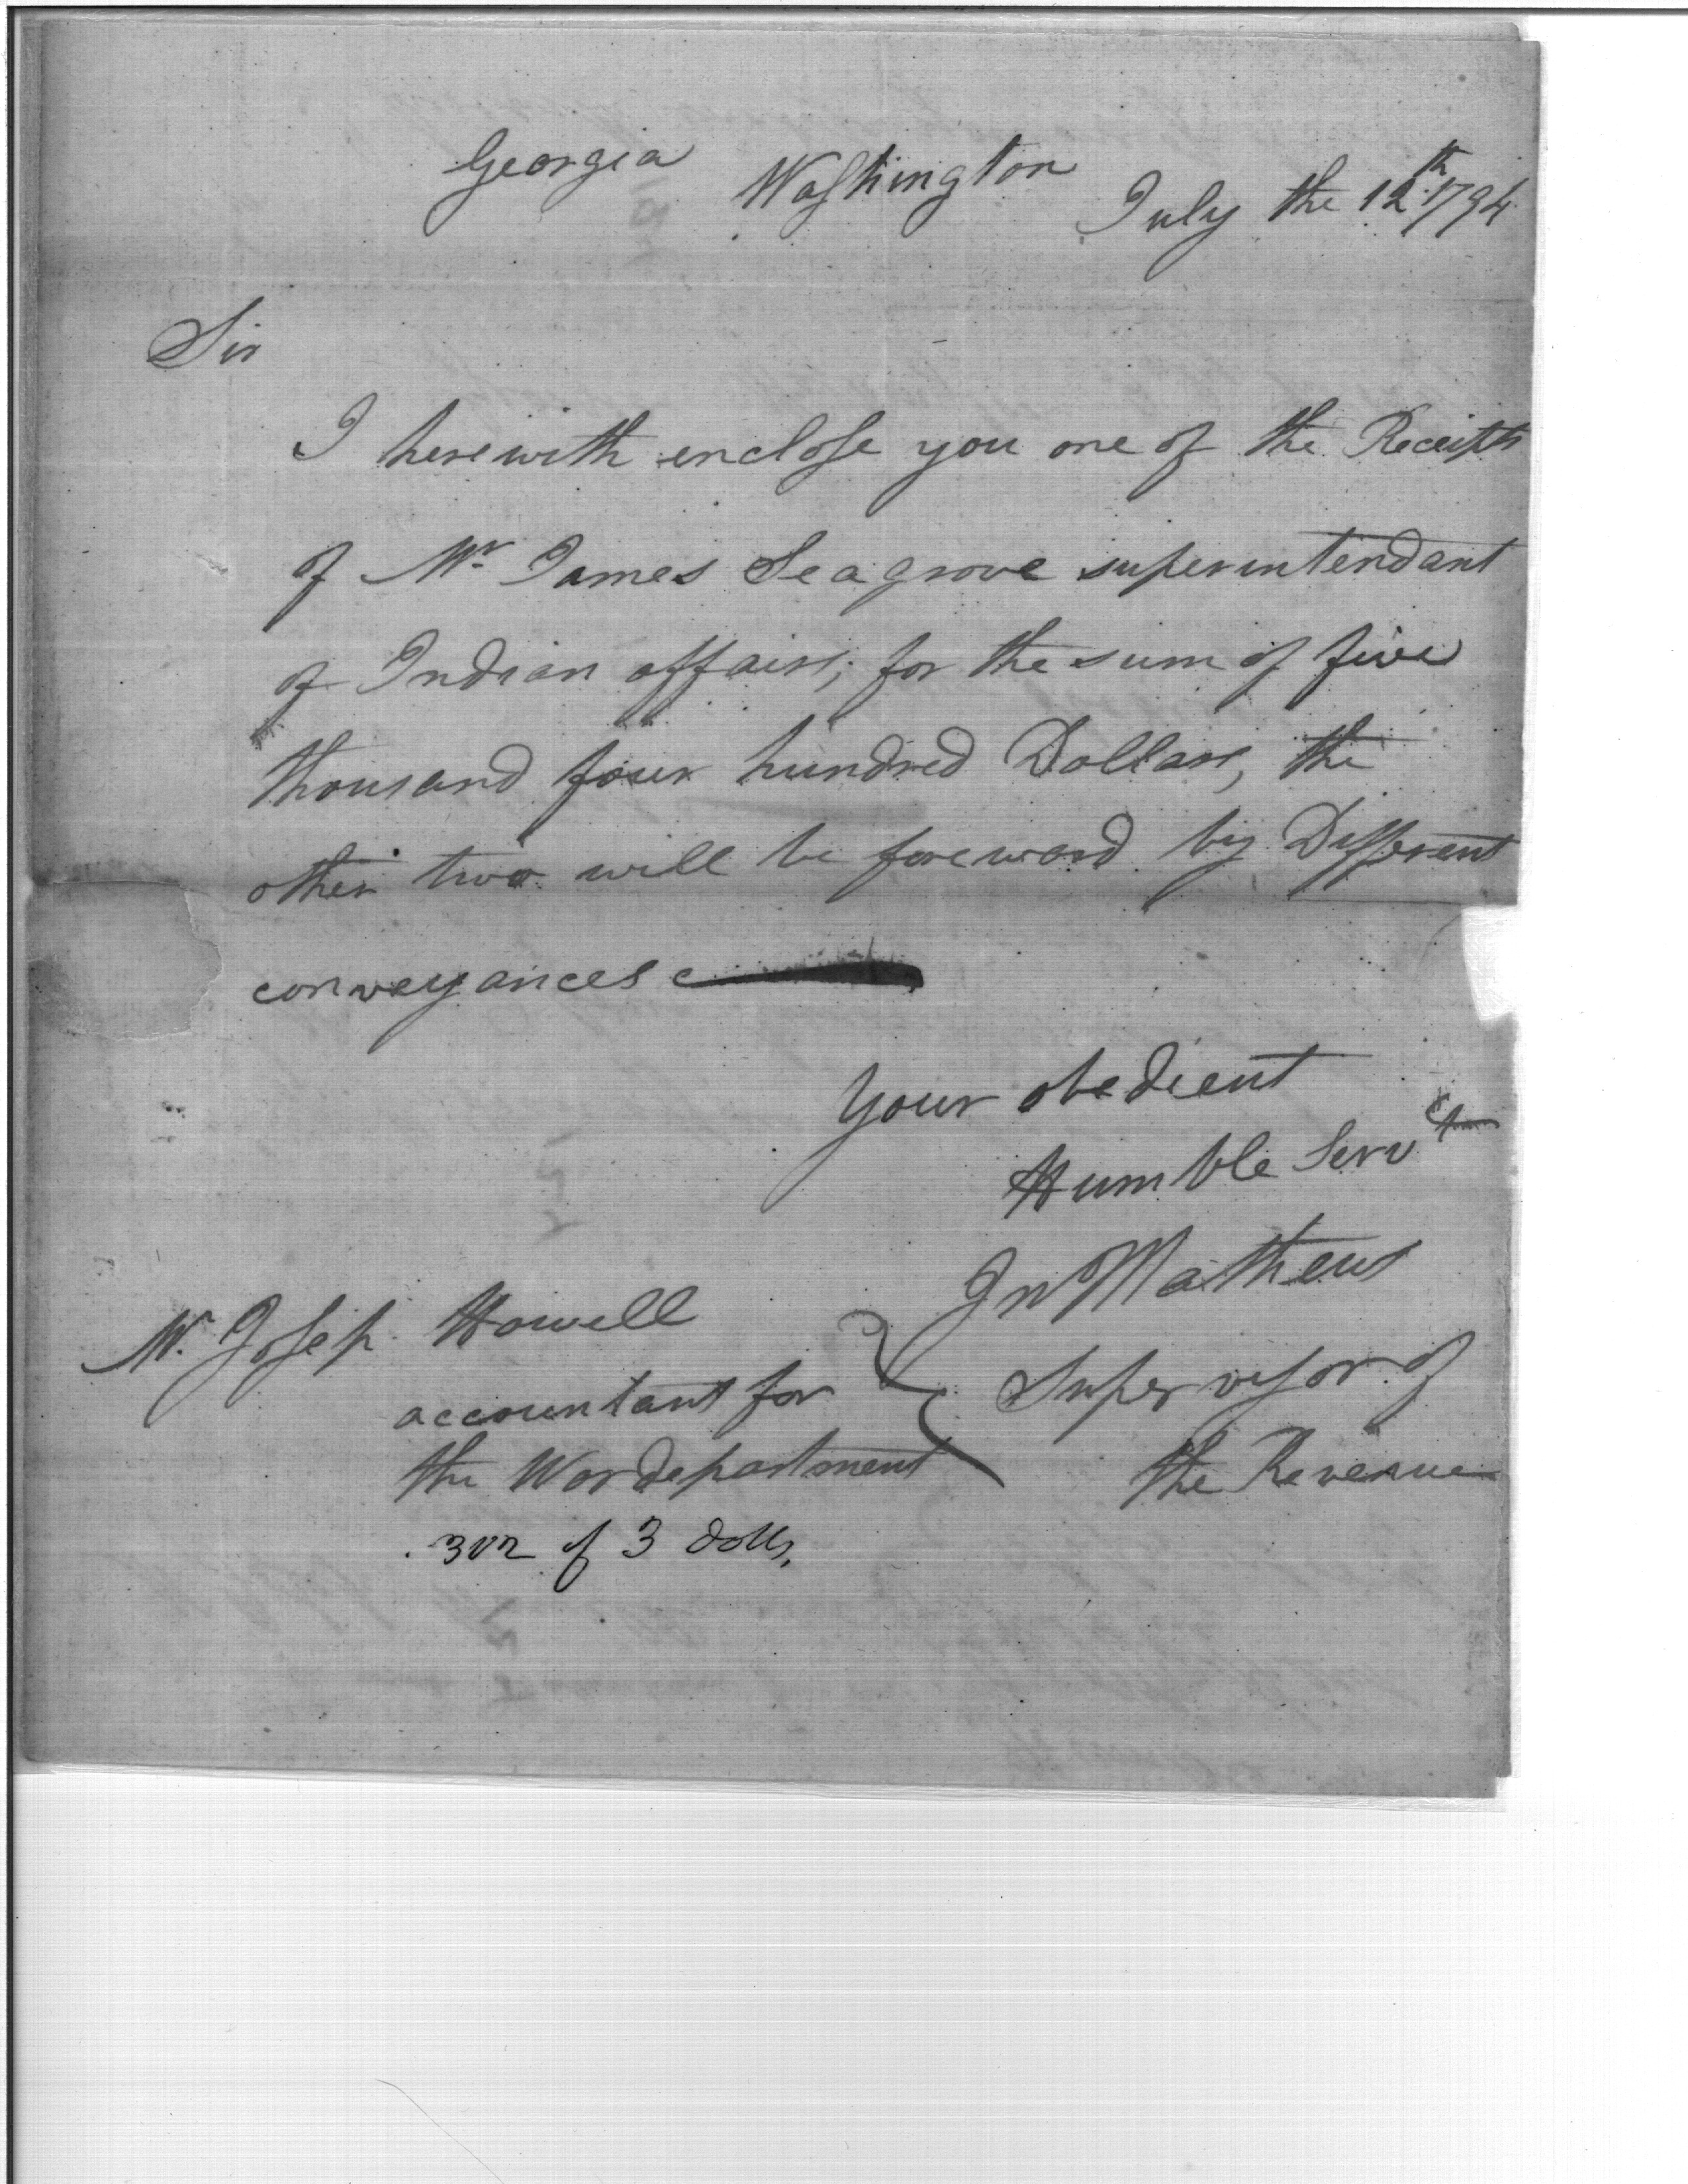 Georgia Washington July the 12th 1794
Sir
I herewith enclose you one of the Receipts
of Mr James Seagrove superintendant
of Indian affairs; for the sum of five
thousand four hundred Dollars, the
other two will be foreward by Different
conveyances
Your obedient
Humble Servt
Jn Mathews
Mr. Josep Howell
Supervisor of
accountant for
the Revenue
the War department
of 3 dolls,